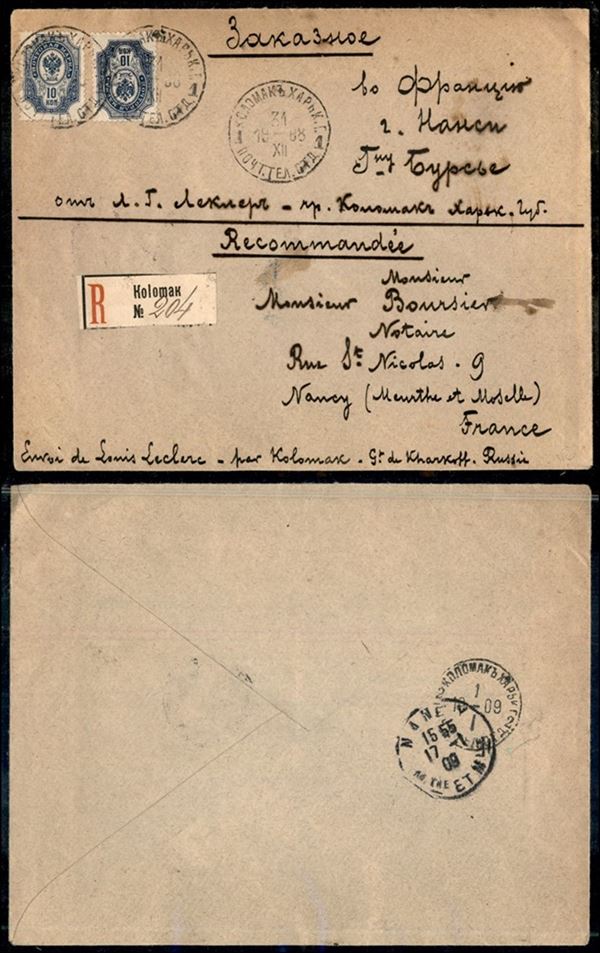 Заказное
во Францію
г. Нанси
Гну Бурсье
отъ Л. Г. Леклеръ – чр. Коломакъ Харьк. Губ.
10
КОП
10
КОП
КОЛОМАКЪ ХАРЬК. Г.
31
19–08
XII
ПОЧТ. ТЕЛ. ОТД.
Recommandée
R
Kolomak
№ 204
Monsieur
Monsieur Boursier
Notaire
Rue St. Nicolas . 9
Nancy (Meurthe et Moselle)
France
Envoi de Louis Leclerc – par Kolomak . Gt de Kharkoff . Russie
КОЛОМАКЪ ХАРЬК. Г.
1
I
19–09
NANCY
15 55
17 - 1
09
ET MLE